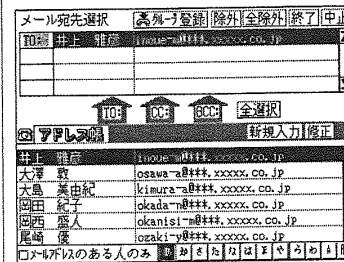 メール宛先選択 グループ登録 除外 全除外 終了 中止
TO: 井上 雅彦 inoue-m@***.xxxxx.co.jp
TO: CC: BCC: 全選択
アドレス帳 新規入力 修正
井上 雅彦 inoue-m@***.xxxxx.co.jp
大澤 敦 osawa-a@***.xxxxx.co.jp
大島 美由紀 kimura-a@***.xxxxx.co.jp
岡田 紀子 okada-n@***.xxxxx.co.jp
岡西 盛人 okanisi-m@***.xxxxx.co.jp
尾崎 優 ozaki-y@***.xxxxx.co.jp
□メールアドレスのある人のみ あ か さ た な は ま や ら わ